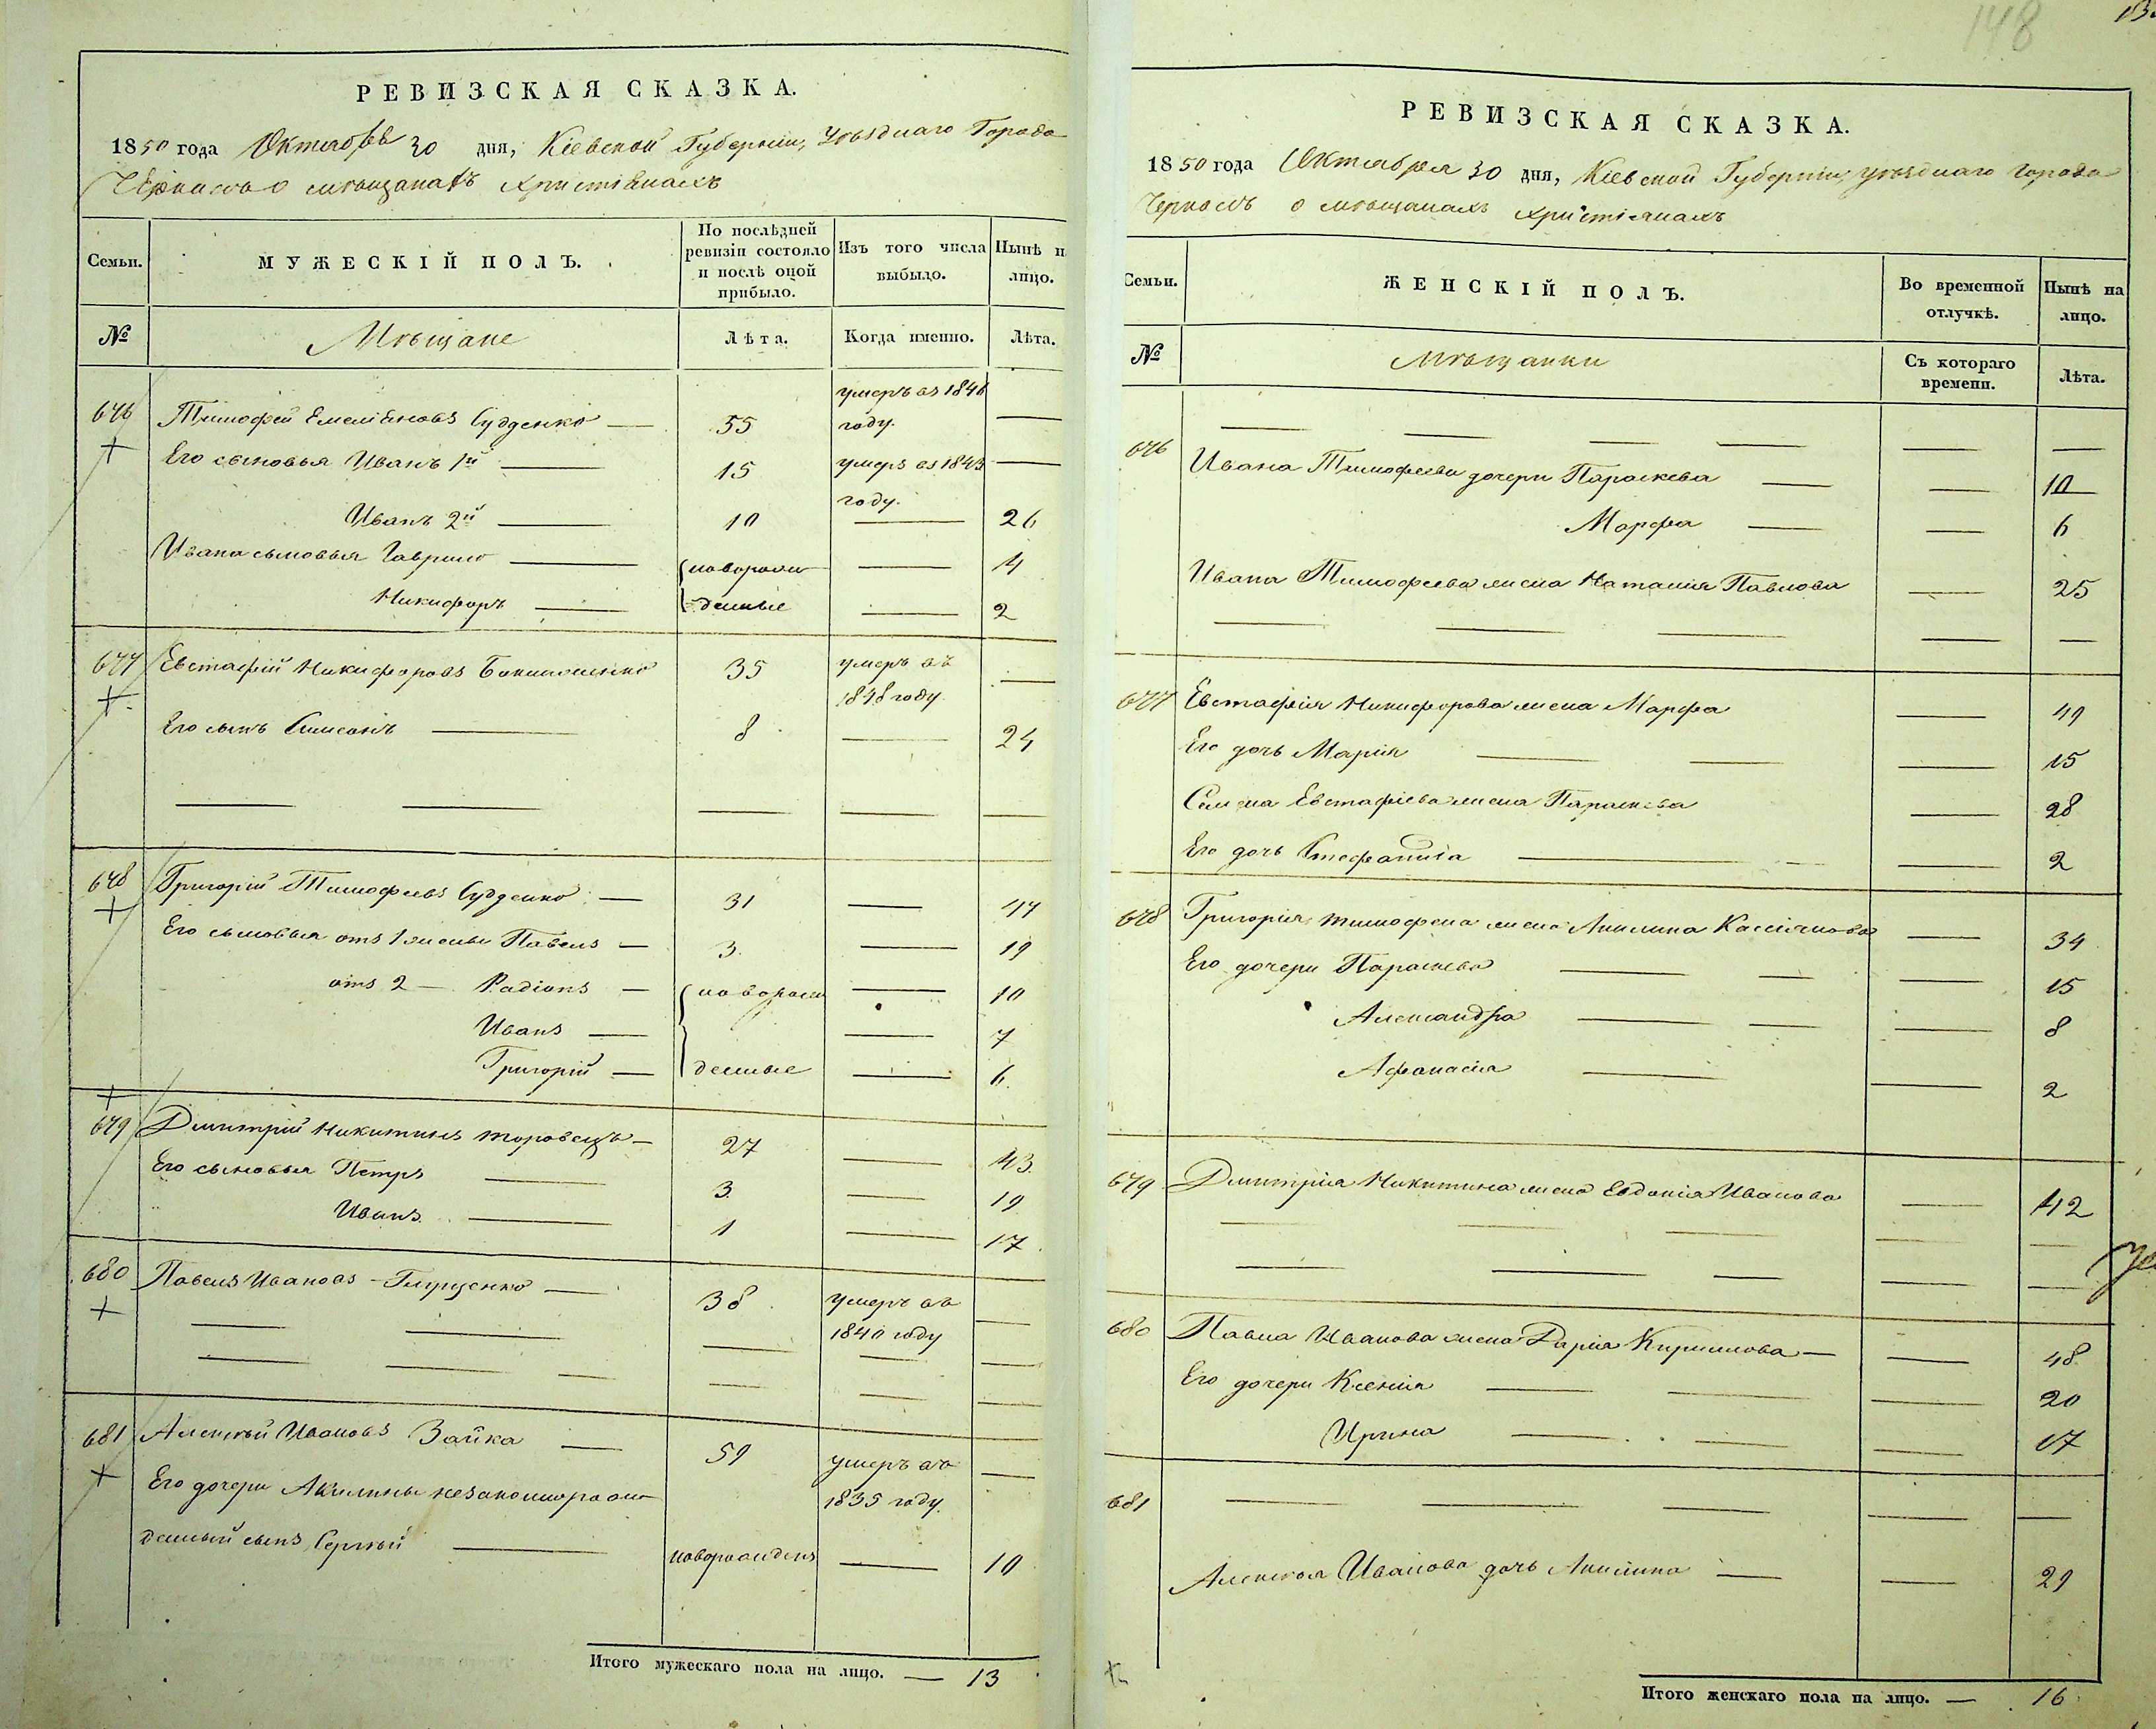 148
РЕВИЗСКАЯ СКАЗКА.
1850 года Октября 30 дня, Кіевской Губерніи, Уѣзднаго Города
о мѣщанахъ христіянахъ
Семьи.
МУЖЕСКІЙ ПОЛЪ.
По послѣдней ревизіи состояло и послѣ оной прибыло.
Изъ того числа выбыло.
Нынѣ н лицо.
№
Мѣщане
Лѣта.
Когда именно.
Лѣта.
676 Тимофей Емеліяновъ Судденко — 55 умеръ въ 1846 году. —
Его сыновья Иванъ 1й — 15 умеръ въ 1843 году. —
Иванъ 2й — 10 — 26
Ивана сыновья Гаврило — новорож — 4
Никифоръ — денные — 2
677 Евстафій Никифоровъ 35 умеръ въ 1848 году. —
Его сынъ Симеонъ — 8 — 24
678 Григорій Тимофеевъ Судденко — 31 — 47
Его сыновья отъ 1 жены Павелъ — 3 — 19
отъ 2 — Радіонъ — новорож — 10
Иванъ — — 7
Григорій — денные — 6
679 Дмитрій Никитинъ Торовецъ — 27 — 43
Его сыновья Петръ — 3 — 19
Иванъ — 1 — 17
680 Павелъ Ивановъ Глущенко — 38 умеръ въ 1840 году —
681 Алексѣй Ивановъ Зайка — 59 умеръ въ 1835 году. —
Его дочери Акилины незаконнорож
денный сынъ Сергѣй — новорожденъ — 10
Итого мужескаго пола на лицо. — 13
РЕВИЗСКАЯ СКАЗКА.
1850 года Октября 30 дня, Кіевской Губерніи, уѣзднаго города
Черкасъ о мѣщанахъ христіянахъ
Семьи.
ЖЕНСКІЙ ПОЛЪ.
Во временной отлучкѣ.
Нынѣ на лицо.
№
Мѣщанки
Съ котораго времени.
Лѣта.
676
Ивана Тимофеева дочери Параскева — — 10
Марфа — — 6
Ивана Тимофеева жена Наталия Павлова — 25
677 Евстафія Никифорова жена Марфа — 49
Его дочь Марія — — 15
Симиона Евстафіева жена Параскева — 28
Его дочь Стефанида — — 2
678 Григорія Тимофеева жена Акилина Касіянова — 34
Его дочери Параскева — — 15
Александра — — 8
Афанасія — — 2
679 Дмитрія Никитина жена Евдокія Иванова — 42
680 Павла Иванова жена Дарія Кирилова — — 48
Его дочери Ксенія — — 20
Ирина — — 17
681
Алексѣя Иванова дочь Акилина — — 29
Итого женскаго пола на лицо. — 16